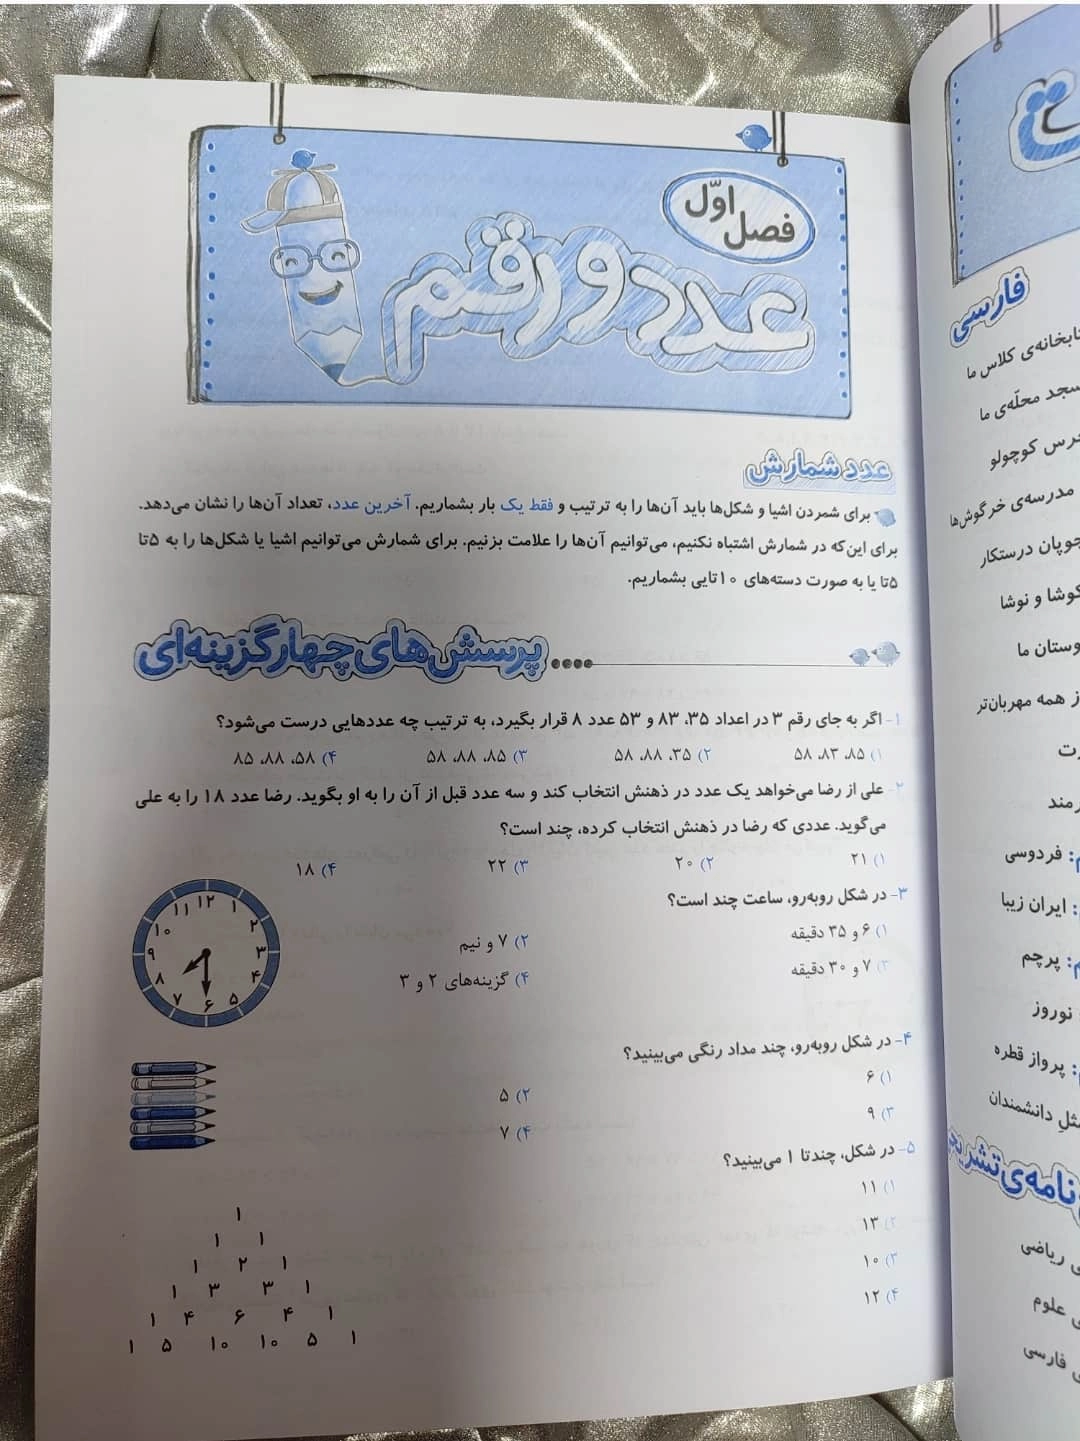 فصل اوّل
عدد و رقم
عدد شمارش
برای شمردن اشیا و شکل‌ها باید آن‌ها را به ترتیب و فقط یک بار بشماریم. آخرین عدد، تعداد آن‌ها را نشان می‌دهد.
برای این‌که در شمارش اشتباه نکنیم، می‌توانیم آن‌ها را علامت بزنیم. برای شمارش می‌توانیم اشیا یا شکل‌ها را به ۵تا
۵تا یا به صورت دسته‌های ۱۰تایی بشماریم.
پرسش‌های چهارگزینه‌ای
۱- اگر به جای رقم ۳ در اعداد ۳۵، ۸۳ و ۵۳ عدد ۸ قرار بگیرد، به ترتیب چه عددهایی درست می‌شود؟
۱) ۸۵، ۸۳، ۵۸ ۲) ۳۵، ۸۸، ۵۸ ۳) ۸۵، ۸۸، ۵۸ ۴) ۵۸، ۸۸، ۸۵
۲- علی از رضا می‌خواهد یک عدد در ذهنش انتخاب کند و سه عدد قبل از آن را به او بگوید. رضا عدد ۱۸ را به علی
می‌گوید. عددی که رضا در ذهنش انتخاب کرده، چند است؟
۱) ۲۱ ۲) ۲۰ ۳) ۲۲ ۴) ۱۸
۳- در شکل روبه‌رو، ساعت چند است؟
۱) ۶ و ۳۵ دقیقه ۲) ۷ و نیم
۳) ۷ و ۳۰ دقیقه ۴) گزینه‌های ۲ و ۳
۱۲ ۱ ۲ ۳ ۴ ۵ ۶ ۷ ۸ ۹ ۱۰ ۱۱
۴- در شکل روبه‌رو، چند مداد رنگی می‌بینید؟
۱) ۶ ۲) ۵
۳) ۹ ۴) ۷
۵- در شکل، چندتا ۱ می‌بینید؟
۱) ۱۱
۲) ۱۳
۳) ۱۰
۴) ۱۲
۱
۱ ۱
۱ ۲ ۱
۱ ۳ ۳ ۱
۱ ۴ ۶ ۴ ۱
۱ ۵ ۱۰ ۱۰ ۵ ۱
فارسی
کلاس ما
محلّه‌ی ما
کوچولو
مدرسه‌ی خرگوش‌ها
درستکار
و نوشا
ما
همه مهربان‌تر
فردوسی
ایران زیبا
پرچم
نوروز
پرواز قطره
دانشمندان
ریاضی
علوم
فارسی